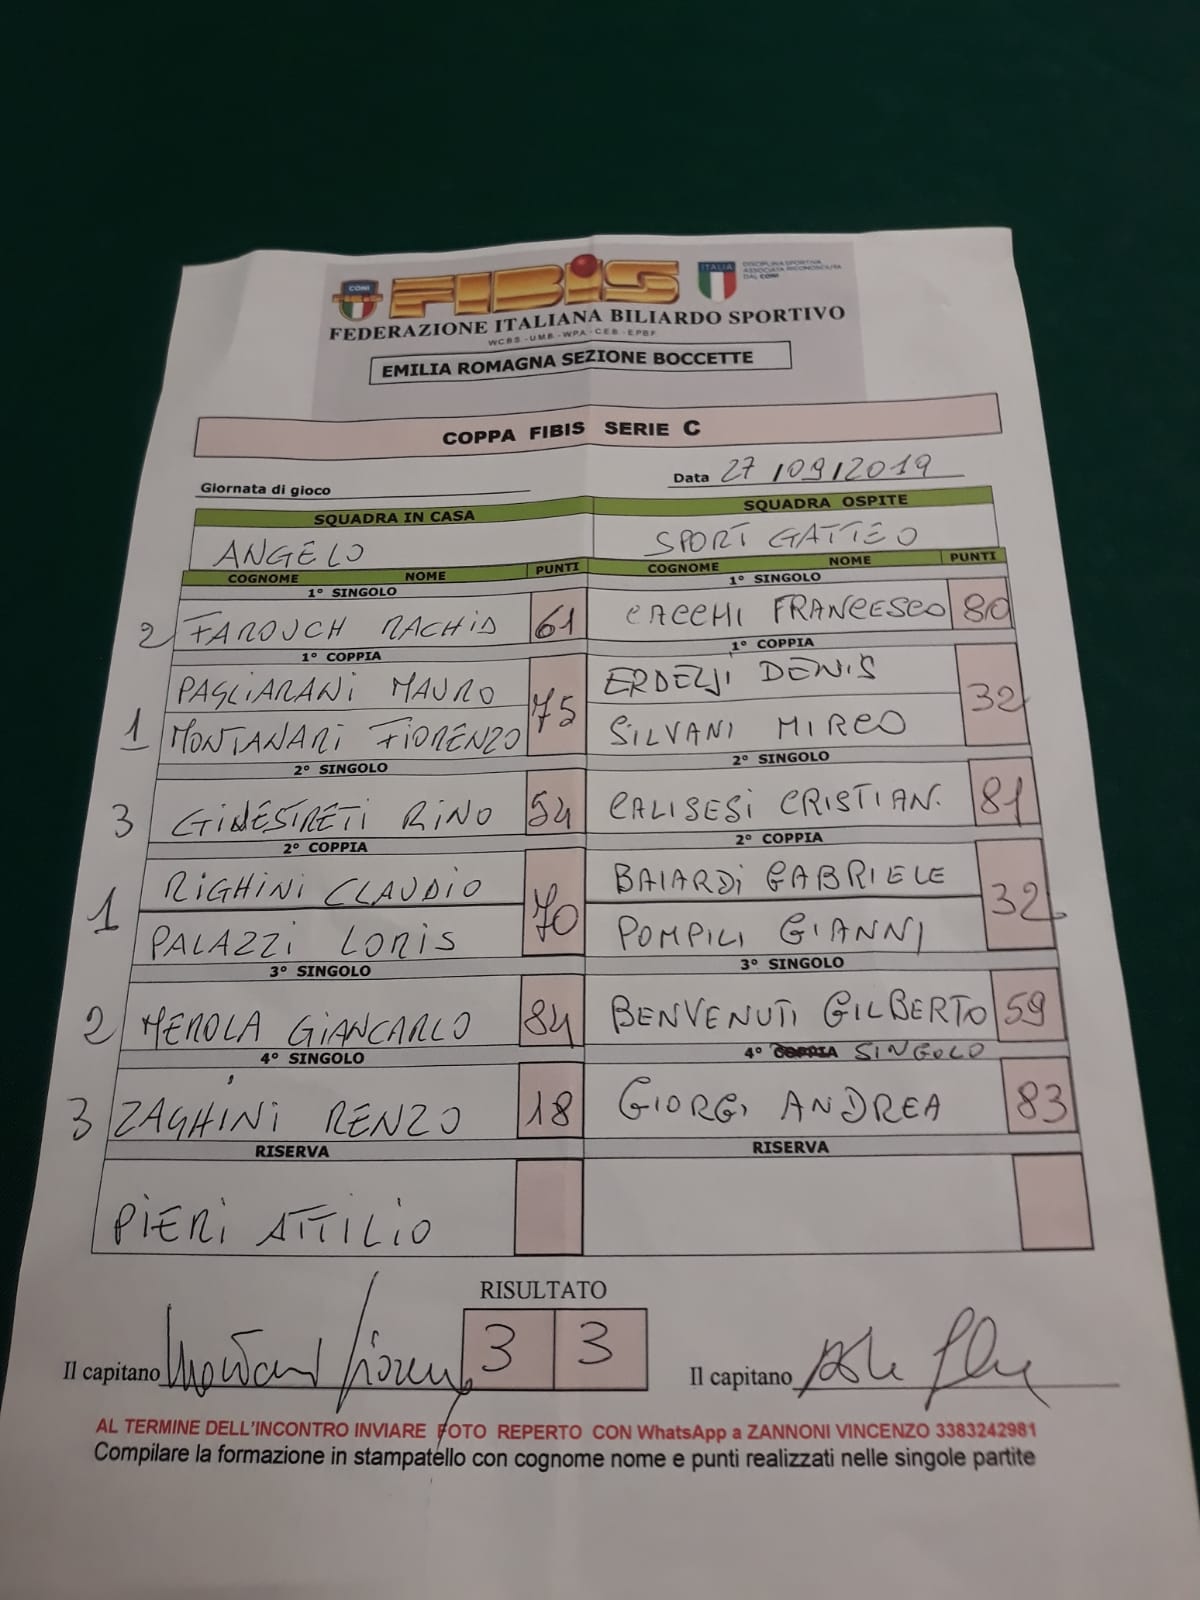 CONI
FIBIS
ITALIA
DISCIPLINA SPORTIVA
ASSOCIATA RICONOSCIUTA
DAL CONI
FEDERAZIONE ITALIANA BILIARDO SPORTIVO
WCBS - UMB - WPA - CEB - EPBF
EMILIA ROMAGNA SEZIONE BOCCETTE
COPPA FIBIS SERIE C
Giornata di gioco Data 27/09/2019
SQUADRA IN CASA SQUADRA OSPITE
ANGELO SPORT GATTEO
COGNOME NOME PUNTI COGNOME NOME PUNTI
1° SINGOLO 1° SINGOLO
2 FAROUCH RACHID 61 CACCHI FRANCESCO 80
1° COPPIA 1° COPPIA
PAGLIARANI MAURO 75 ERDELJI DENIS 32
1 MONTANARI FIORENZO SILVANI MIRCO
2° SINGOLO 2° SINGOLO
3 GINESTRETI RINO 54 CALISESI CRISTIAN. 81
2° COPPIA 2° COPPIA
1 RIGHINI CLAUDIO 70 BAIARDI GABRIELE 32
PALAZZI LORIS POMPILI GIANNI
3° SINGOLO 3° SINGOLO
2 MEROLA GIANCARLO 84 BENVENUTI GILBERTO 59
4° SINGOLO 4° COPPIA SINGOLO
3 ZAGHINI RENZO 18 GIORGI ANDREA 83
RISERVA RISERVA
PIERI ATTILIO
RISULTATO
3 3
Il capitano Il capitano
AL TERMINE DELL'INCONTRO INVIARE FOTO REPERTO CON WhatsApp a ZANNONI VINCENZO 3383242981
Compilare la formazione in stampatello con cognome nome e punti realizzati nelle singole partite